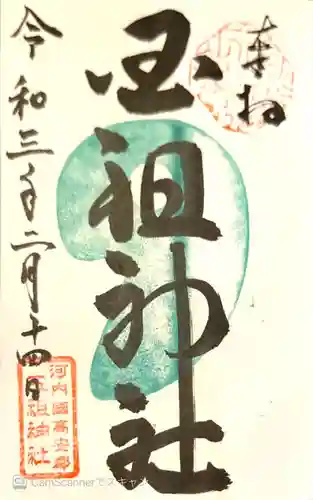 奉拝
玉祖神社
令和三年二月十四日
河内國高安郡
玉祖神社
CamScannerでスキャン